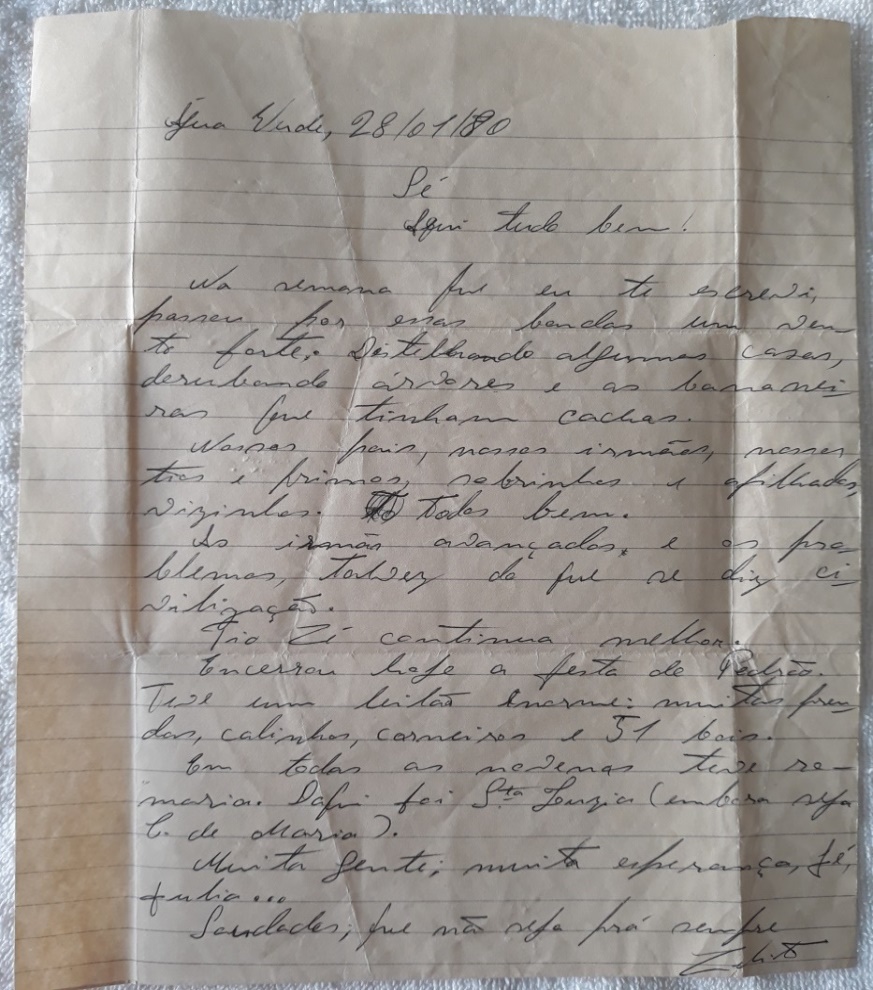 Água Verde, 28/01/80
Sé
Aqui tudo bem!
Na semana que eu te escrevi,
passou por essas bandas um ven-
to forte. Distelhando algumas casas,
derubando árvores e as bananei-
ras que tinham cachas.
Nossos pais, nossos irmãos, nossos
tios e primos, sobrinhos e afilhados,
vizinhos. Todos bem.
As irmãs avançadas, e os pro-
blemas, talvez do que se diz ci-
vilização.
Tio Zé continua melhor.
Encerrou hoje a festa do Pedrão.
Teve um leitão enorme: muitas pren-
das, galinhas, carneiros e 51 bois.
Em todas as novenas teve ro-
maria. Daqui foi Sta Luzia (embora seja
C. de Maria).
Muita gente; muita esperança, fé,
fulia...
Saudades, que não seja prá sempre
Zelito